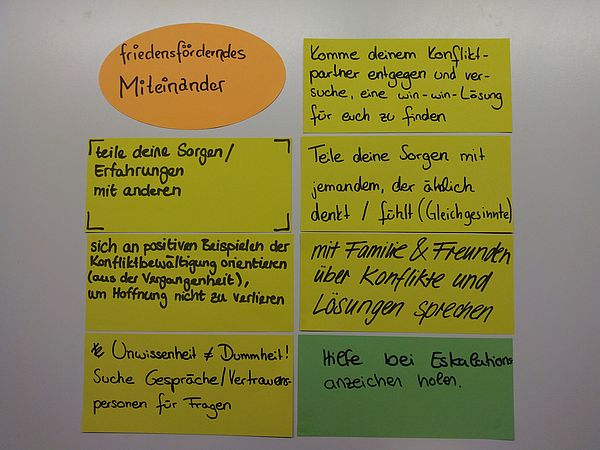 friedensförderndes
Miteinander
Komme deinem Konflikt-
partner entgegen und ver-
suche, eine win-win-Lösung
für euch zu finden
teile deine Sorgen/
Erfahrungen
mit anderen
Teile deine Sorgen mit
jemandem, der ähnlich
denkt / fühlt (Gleichgesinnte)
sich an positiven Beispielen der
Konfliktbewältigung orientieren
(aus der Vergangenheit),
um Hoffnung nicht zu verlieren
mit Familie & Freunden
über Konflikte und
Lösungen sprechen
Unwissenheit ≠ Dummheit!
Suche Gespräche/Vertrauens-
personen für Fragen
Hilfe bei Eskalations-
anzeichen holen.